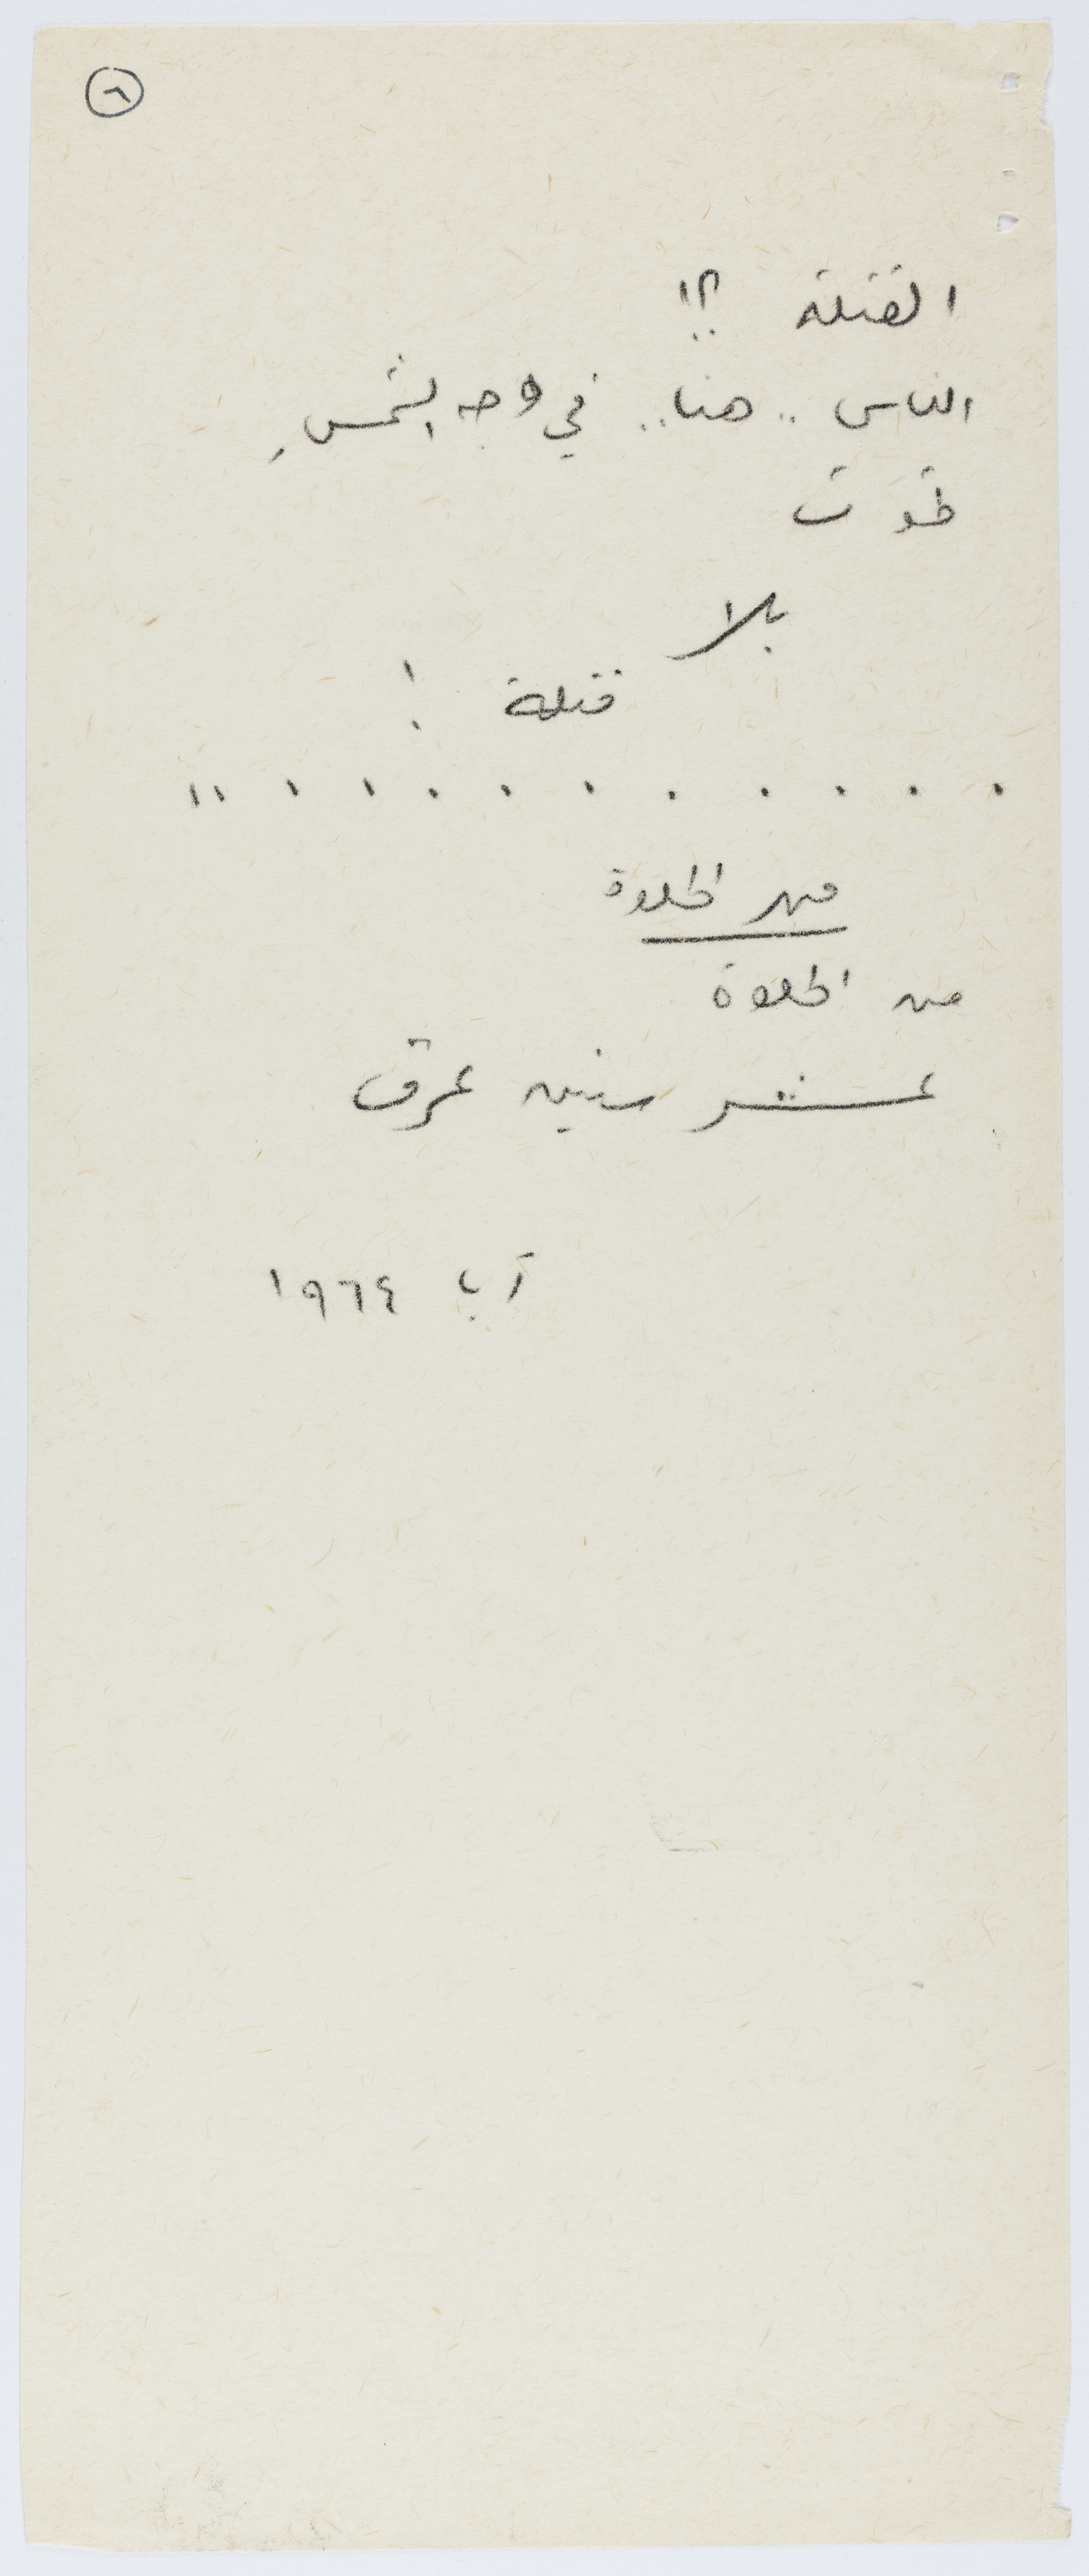 ٦
القتلة ؟!
الناس .. هنا .. في وجه الشمسِ
تموت
بلا
قتلة !
. . . . . . . . . . . .
مهر الحلوة
مهر الحلوة
عشر سنين عرق
آب ١٩٦٤